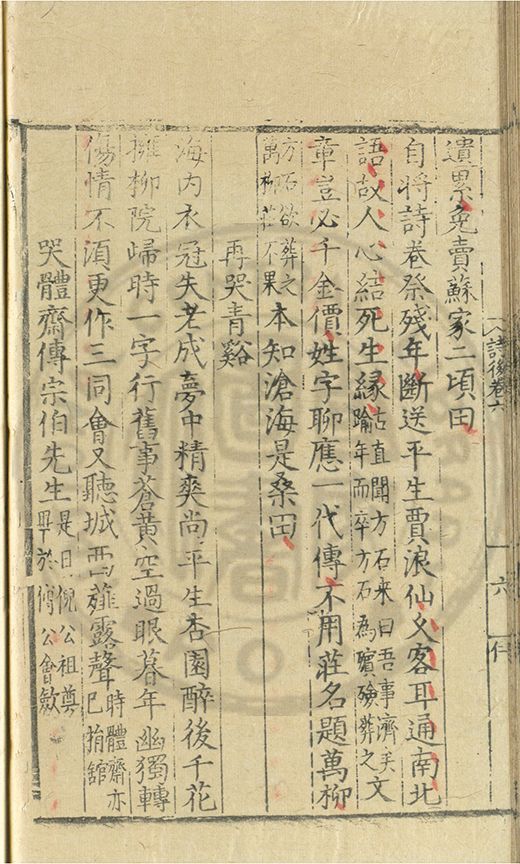 遺累免賣蘇家二頃田
自將詩卷祭殘年斷送平生賈浪仙久客耳通南北
語故人心結死生緣古直聞方石來曰吾事濟矣踰年而卒方石為殯殮葬之文
章豈必千金價姓字聊應一代傳不用莊名題萬柳
方石欲葬之萬柳莊不果本知滄海是桑田
再哭青谿
海内衣冠失老成夢中精爽尚平生杏園醉後千花
擁柳院歸時一字行舊事蒼黃空過眼暮年幽獨轉
傷情不須更作三同會又聽城西薤露聲時體齋亦已捐舘
哭體齋傳宗伯先生是日倪公祖奠畢於傅公會斂
詩後卷六
六